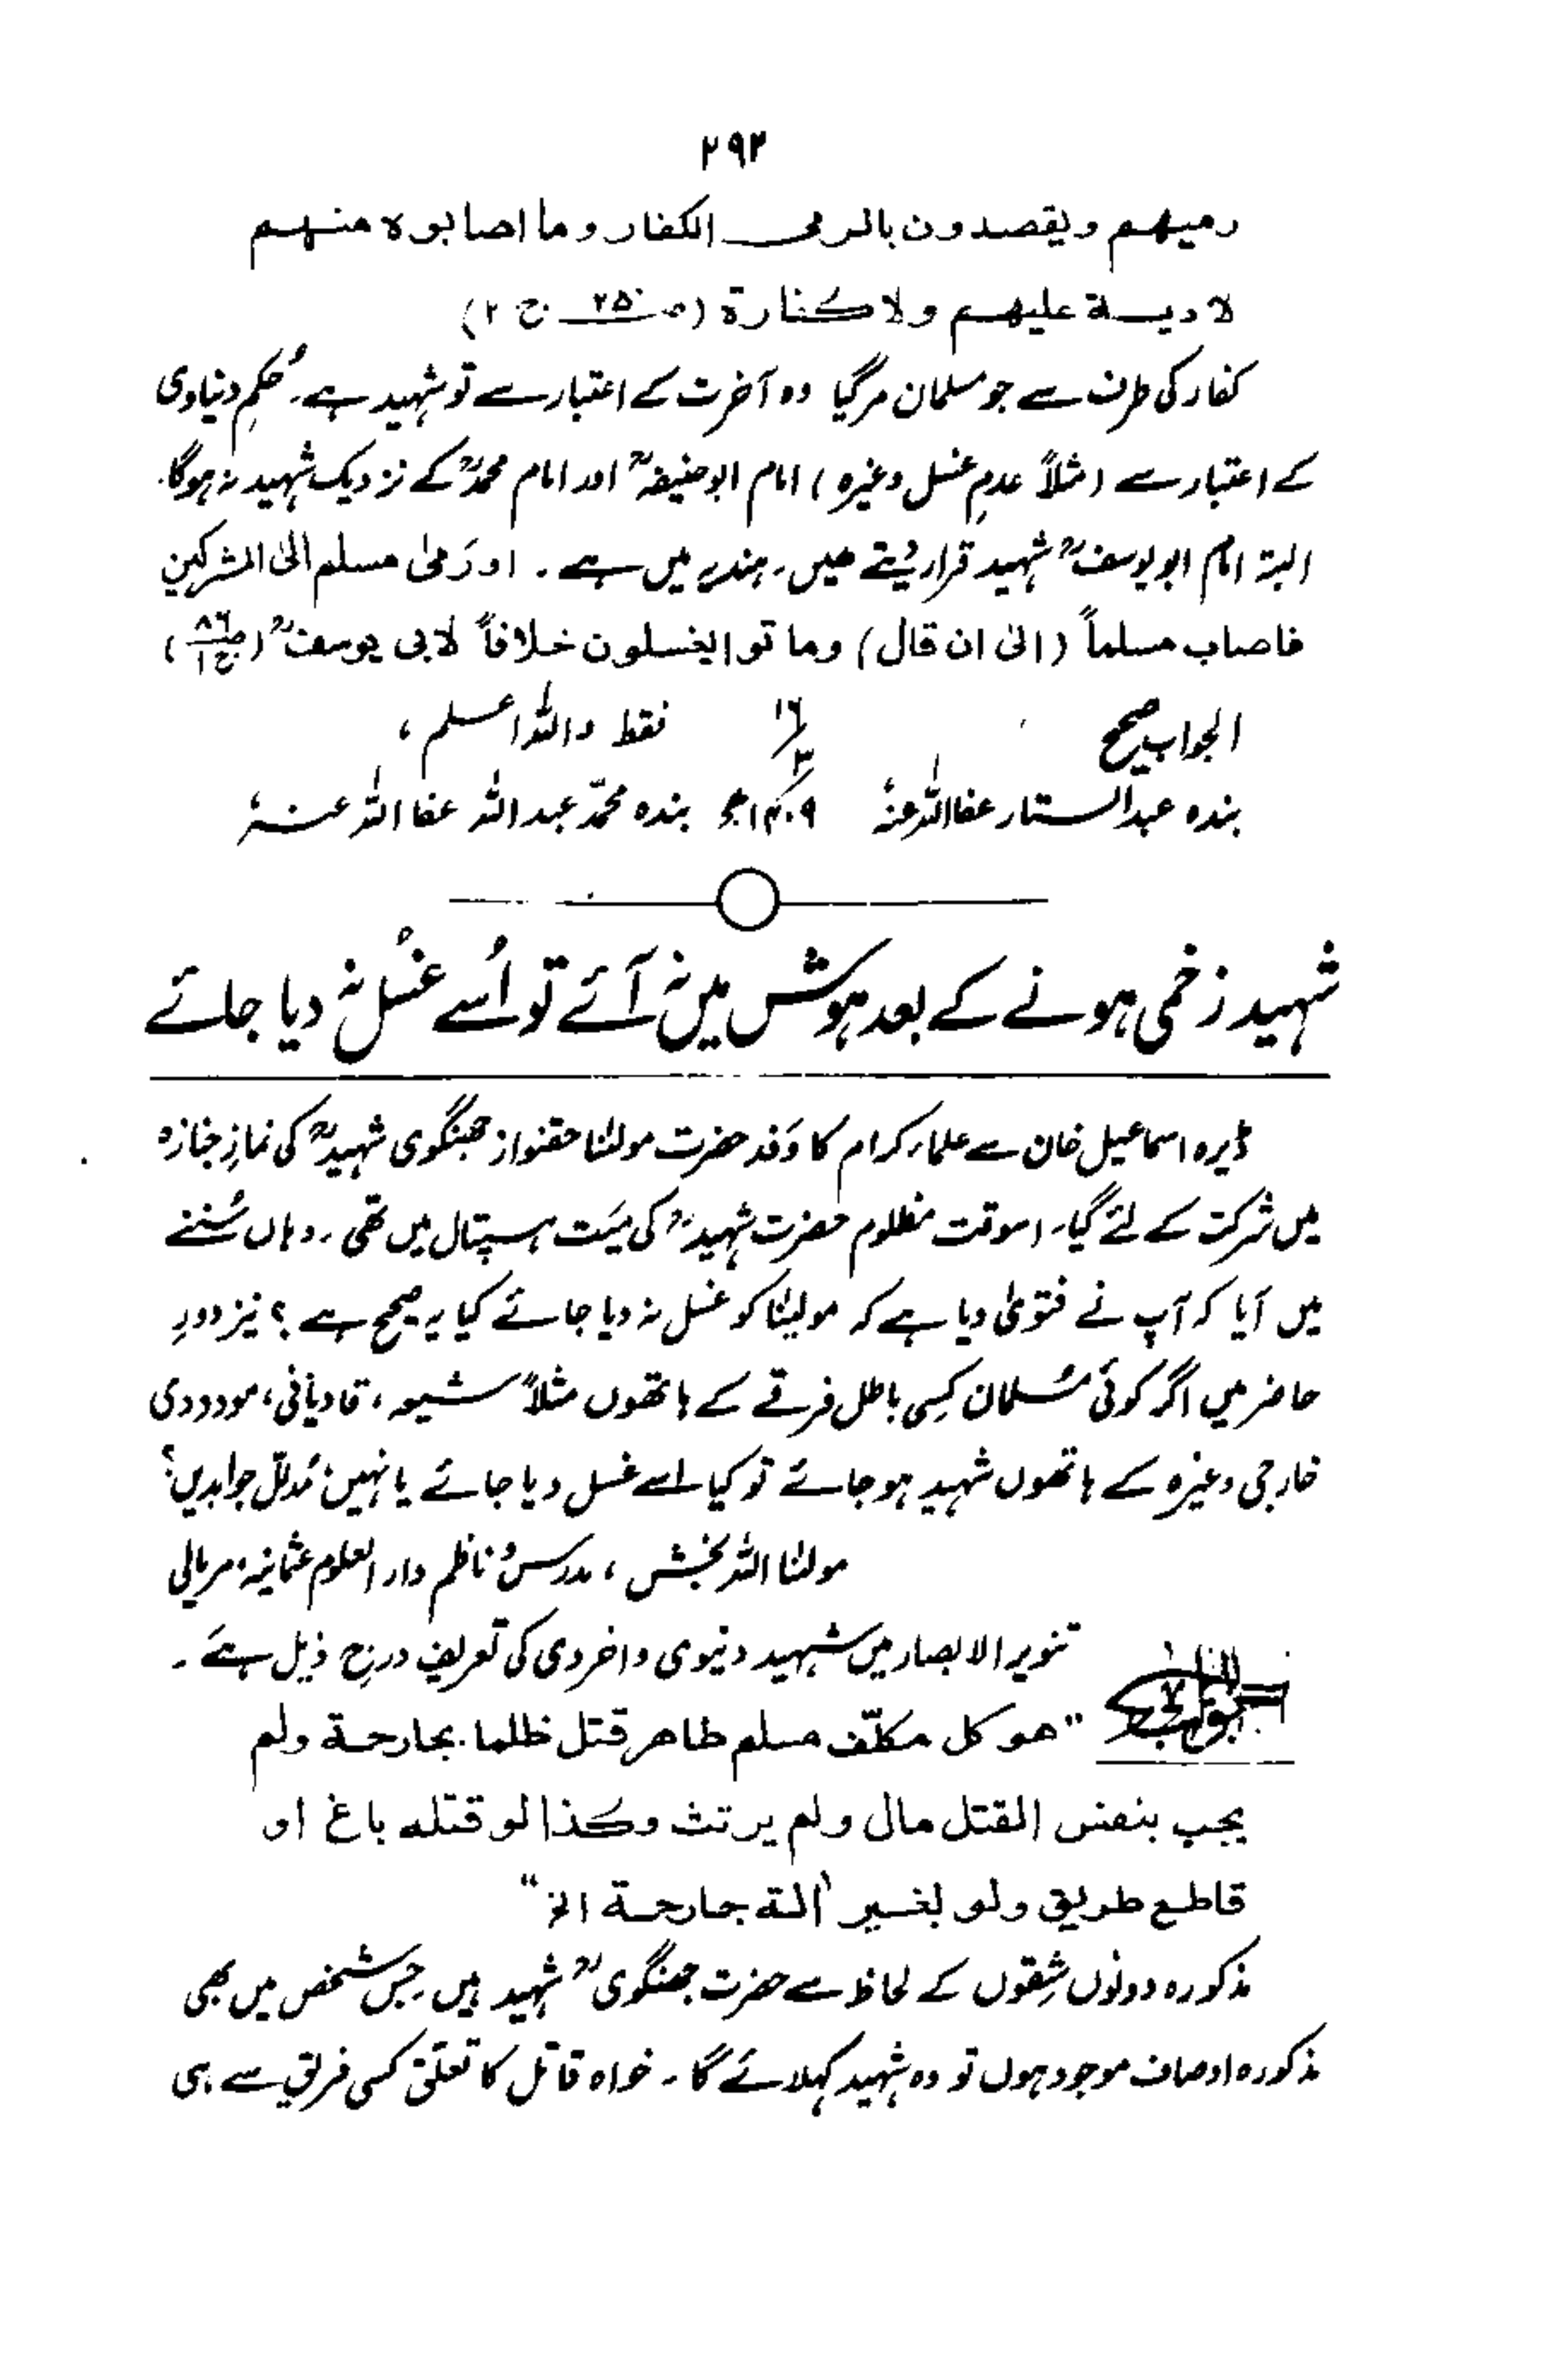 ۲۹۲
رميهم ويقصدون بالرمى الكفار وما اصابوه منهم
لا دية عليهم ولا كفارة (صـ۲۵۰ ج ۲)
کفار کی طرف سے جو مسلمان مر گیا وہ آخرت کے اعتبار سے تو شہید ہے۔ حُکمِ دنیاوی
کے اعتبار سے (مثلاً عدمِ غسل وغیرہ) امام ابو حنیفہؒ اور امام محمدؒ کے نزدیک شہید نہ ہوگا۔
البتہ امام ابو یوسفؒ شہید قرار دیتے ھیں۔ ہندیہ میں ہے۔ او رَمیٰ مسلم الیٰ المشرکین
فاصاب مسلماً (الیٰ ان قال) وما توا یغسلون خلافاً لابی یوسفؒ (صـ۸۶ ج۱)
الجواب صحیح
فقط واللہ اعلم،
بندہ عبدالستار عفا اللہ عنہٗ
۱۶/۳/۱۴۰۹ھ بندہ محمّد عبداللہ عفا اللہ عنہٗ
شہید زخمی ہونے کے بعد ہوش میں نہ آئے تو اُسے غسُل نہ دیا جائے
ڈیرہ اسماعیل خان سے علماء کرام کا وَفد حضرت مولٰنا حقنواز جھنگوی شہیدؒ کی نمازِ جنازہ
میں شرکت کے لئے گیا۔ اسوقت مظلوم حضرت شہیدؒ کی میّت ہسپتال میں تھی۔ وہاں سُننے
میں آیا کہ آپ نے فتویٰ دیا ہے کہ مولیٰنا کو غسل نہ دیا جائے کیا یہ صحیح ہے؟ نیز دورِ
حاضر میں اگر کوئی مُسلمان کِسی باطل فرقے کے ہاتھوں مثلاً شیعہ، قادیانی، مودودی
خارجی وغیرہ کے ہاتھوں شہید ہو جائے تو کیا اسے غسل دیا جائے یا نہیں؛ مُدلّل جواب دیں؟
مولٰنا اللہ بخش، مدرس و ناظم دار العلوم عثمانیہ، مریالی
الجواب
تنویر الابصار میں شہید دنیوی و اخروی کی تعریف درج ذیل ہے۔
"هو كل مكلّف مسلم طاهر قتل ظلما بجارحة ولم
يجب بنفس القتل مال ولم يرتث وكذا لو قتله باغ او
قاطع طريق ولو بغير اٰلة جارحة الخ"
مذکورہ دونوں شِقوں کے لحاظ سے حضرت جھنگویؒ شہید ہیں جِس شخص میں بھی
مذکورہ اوصاف موجود ہوں تو وہ شہید کہلائے گا۔ خواہ قاتل کا تعلّق کسی فریق سے ہی